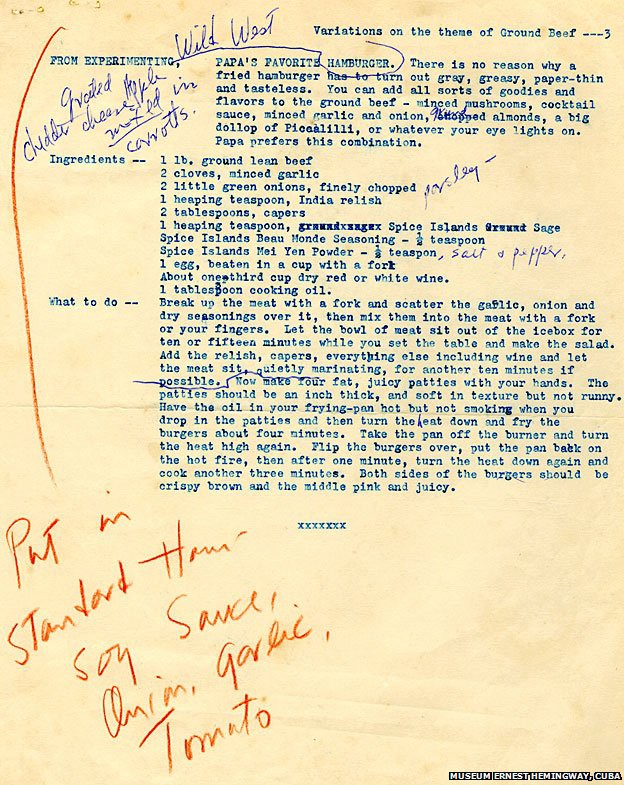 Variations on the theme of Ground Beef ---3
Wild West
FROM EXPERIMENTING, PAPA'S FAVORITE HAMBURGER. There is no reason why a
fried hamburger has to turn out gray, greasy, paper-thin
and tasteless. You can add all sorts of goodies and
flavors to the ground beef - minced mushrooms, cocktail
sauce, minced garlic and onion, almonds, a big
dollop of Piccalilli, or whatever your eye lights on.
Papa prefers this combination.
grated apple
chedder cheese
mixed in
carrots.
Ingredients -- 1 lb. ground lean beef
2 cloves, minced garlic
2 little green onions, finely chopped parsley -
1 heaping teaspoon, India relish
2 tablespoons, capers
1 heaping teaspoon, Spice Islands Sage
Spice Islands Beau Monde Seasoning - ½ teaspoon
Spice Islands Mei Yen Powder - ½ teaspon, salt & pepper,
1 egg, beaten in a cup with a fork
About one-third cup dry red or white wine.
1 tablespoon cooking oil.
What to do -- Break up the meat with a fork and scatter the garlic, onion and
dry seasonings over it, then mix them into the meat with a fork
or your fingers. Let the bowl of meat sit out of the icebox for
ten or fifteen minutes while you set the table and make the salad.
Add the relish, capers, everything else including wine and let
the meat sit, quietly marinating, for another ten minutes if
possible. Now make four fat, juicy patties with your hands. The
patties should be an inch thick, and soft in texture but not runny.
Have the oil in your frying-pan hot but not smoking when you
drop in the patties and then turn the heat down and fry the
burgers about four minutes. Take the pan off the burner and turn
the heat high again. Flip the burgers over, put the pan back on
the hot fire, then after one minute, turn the heat down again and
cook another three minutes. Both sides of the burgers should be
crispy brown and the middle pink and juicy.
xxxxxxx
Put in
Standard Ham-
Soy Sauce,
Onion, garlic,
Tomato
MUSEUM ERNEST HEMINGWAY, CUBA